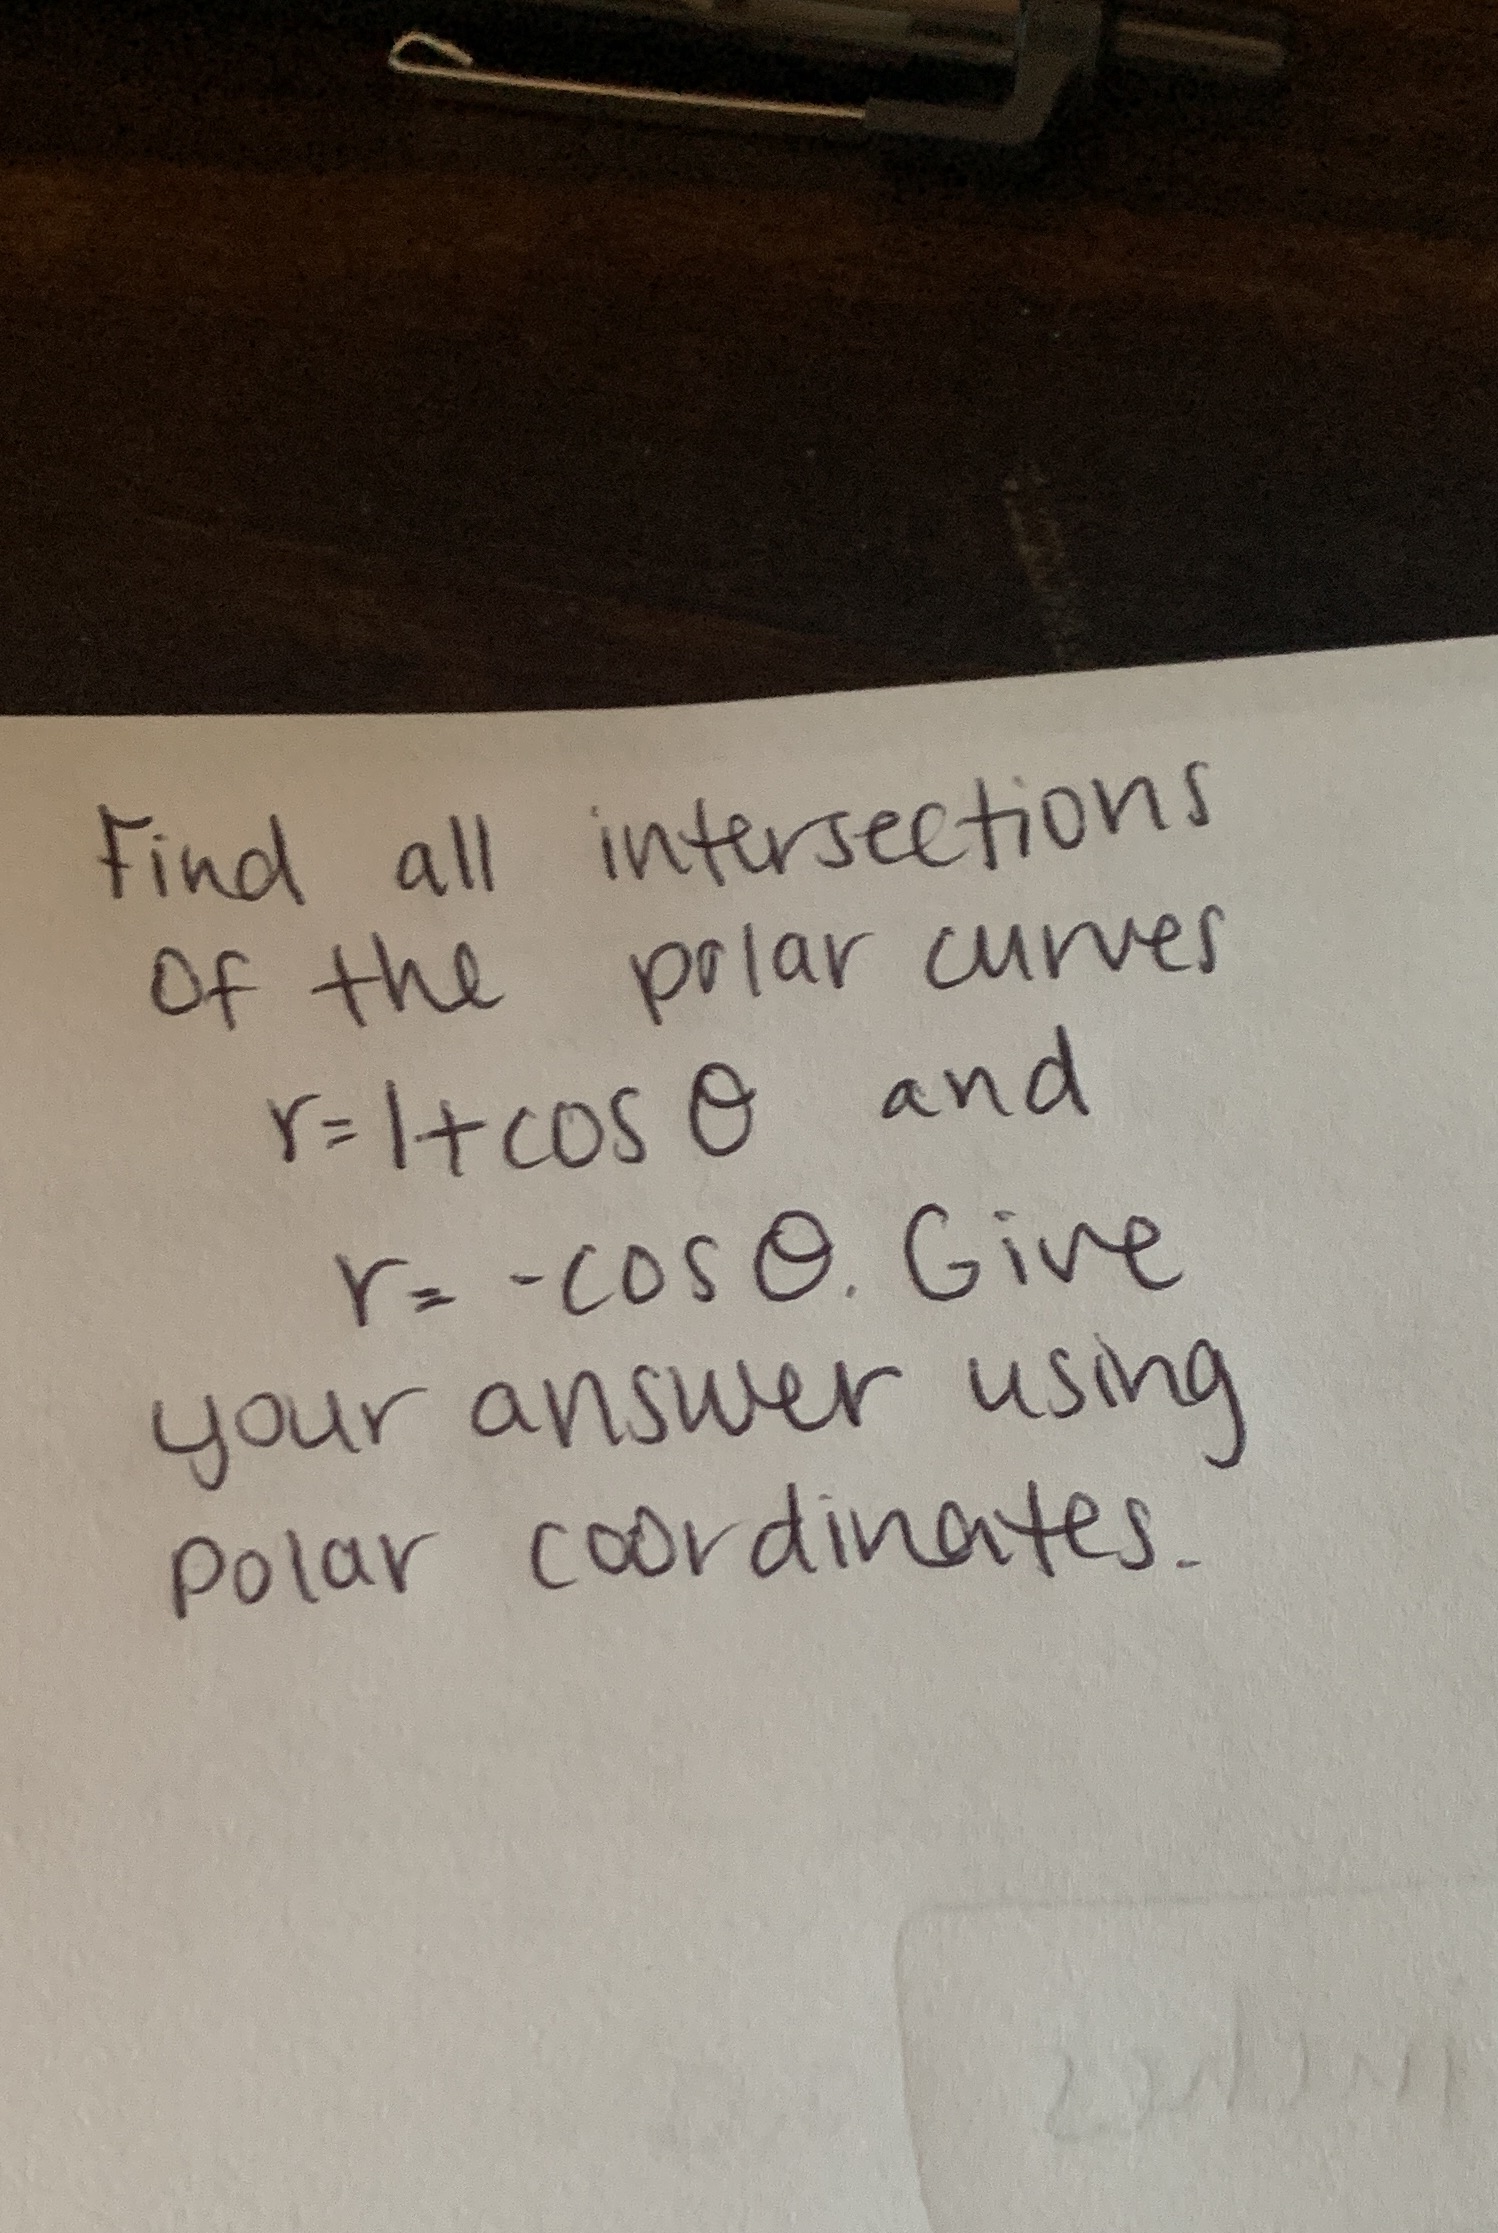 Find all intersections
of the polar curves
r=1+cos θ and
r= -cos θ. Give
your answer using
polar coordinates.